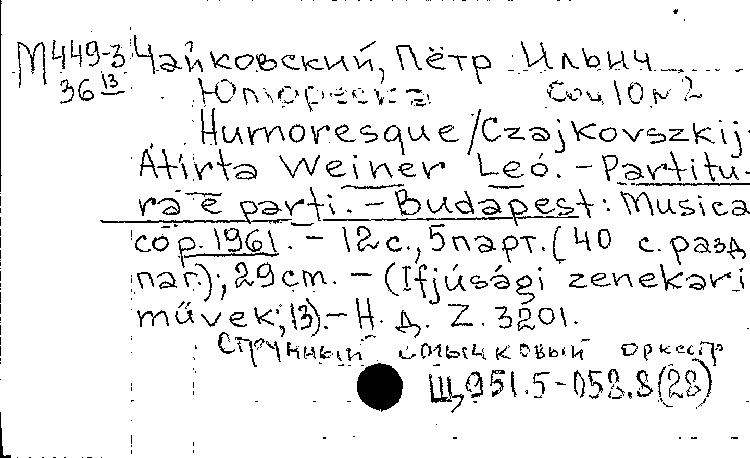 М449-3 Чайковский, Пётр Ильич
36 13 Юмореска Соч 10 № 2
Humoresque/Czajkovszkij.
Átirta Weiner Leó. – Partitu-
ra e parti. – Budapest: Musica
cop. 1961. – 12 с., 5 парт. (40 с. разд
паг.); 29 cm. – (Ifjúsági zenekari
művek; 13). – Н. д. Z. 3201.
Струнный смычковый оркестр
Щ951.5-058.8(28)